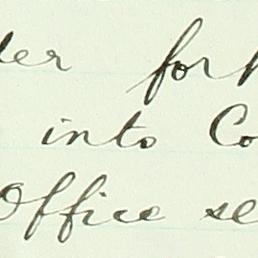 der for
into Co
Office se